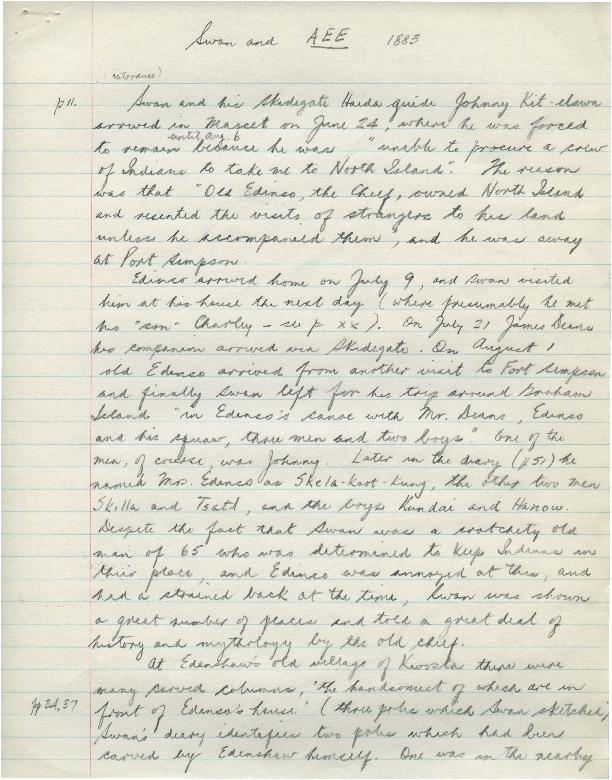 Swan and AEE 1883
(introduce)
p 11. Swan and his Skidegate Haida guide Johnny Kit-elswa
arrived in Masset on June 24, where he was forced
until Aug. 6
to remain because he was "unable to procure a crew
of Indians to take me to North Island". The reason
was that "Old Edinso, the Chief, owned North Island
and resented the visits of strangers to his land
unless he accompanied them", and he was away
at Port Simpson.
Edinso arrived home on July 9, and Swan visited
him at his house the next day (where presumably he met
his "son" Charley - see p xx). On July 21 James Deans
his companion arrived via Skidegate. On August 1
old Edinso arrived from another visit to Fort Simpson
and finally Swan left for his trip around Graham
Island "in Edinso's canoe with Mr. Deans, Edinso
and his squaw, three men and two boys". One of the
men, of course, was Johnny. Later in the diary (p 51) he
named Mrs. Edinso as Skela-Koot-Kung, the other two men
Skilla and Tsatl, and the boys Kundai and Hanow.
Despite the fact that Swan was a crotchety old
man of 65 who was determined to keep Indians in
their place, and Edinso was annoyed at this, and
had a strained back at the time, Swan was shown
a great number of places and told a great deal of
history and mythology by the old chief.
At Edenshaw's old village of Kioosta there were
many carved columns, "the handsomest of which are in
pp 34, 37 front of Edinso's house" (three poles which Swan sketched)
Swan's diary identifies two poles which had been
carved by Edenshaw himself. One was in the nearby